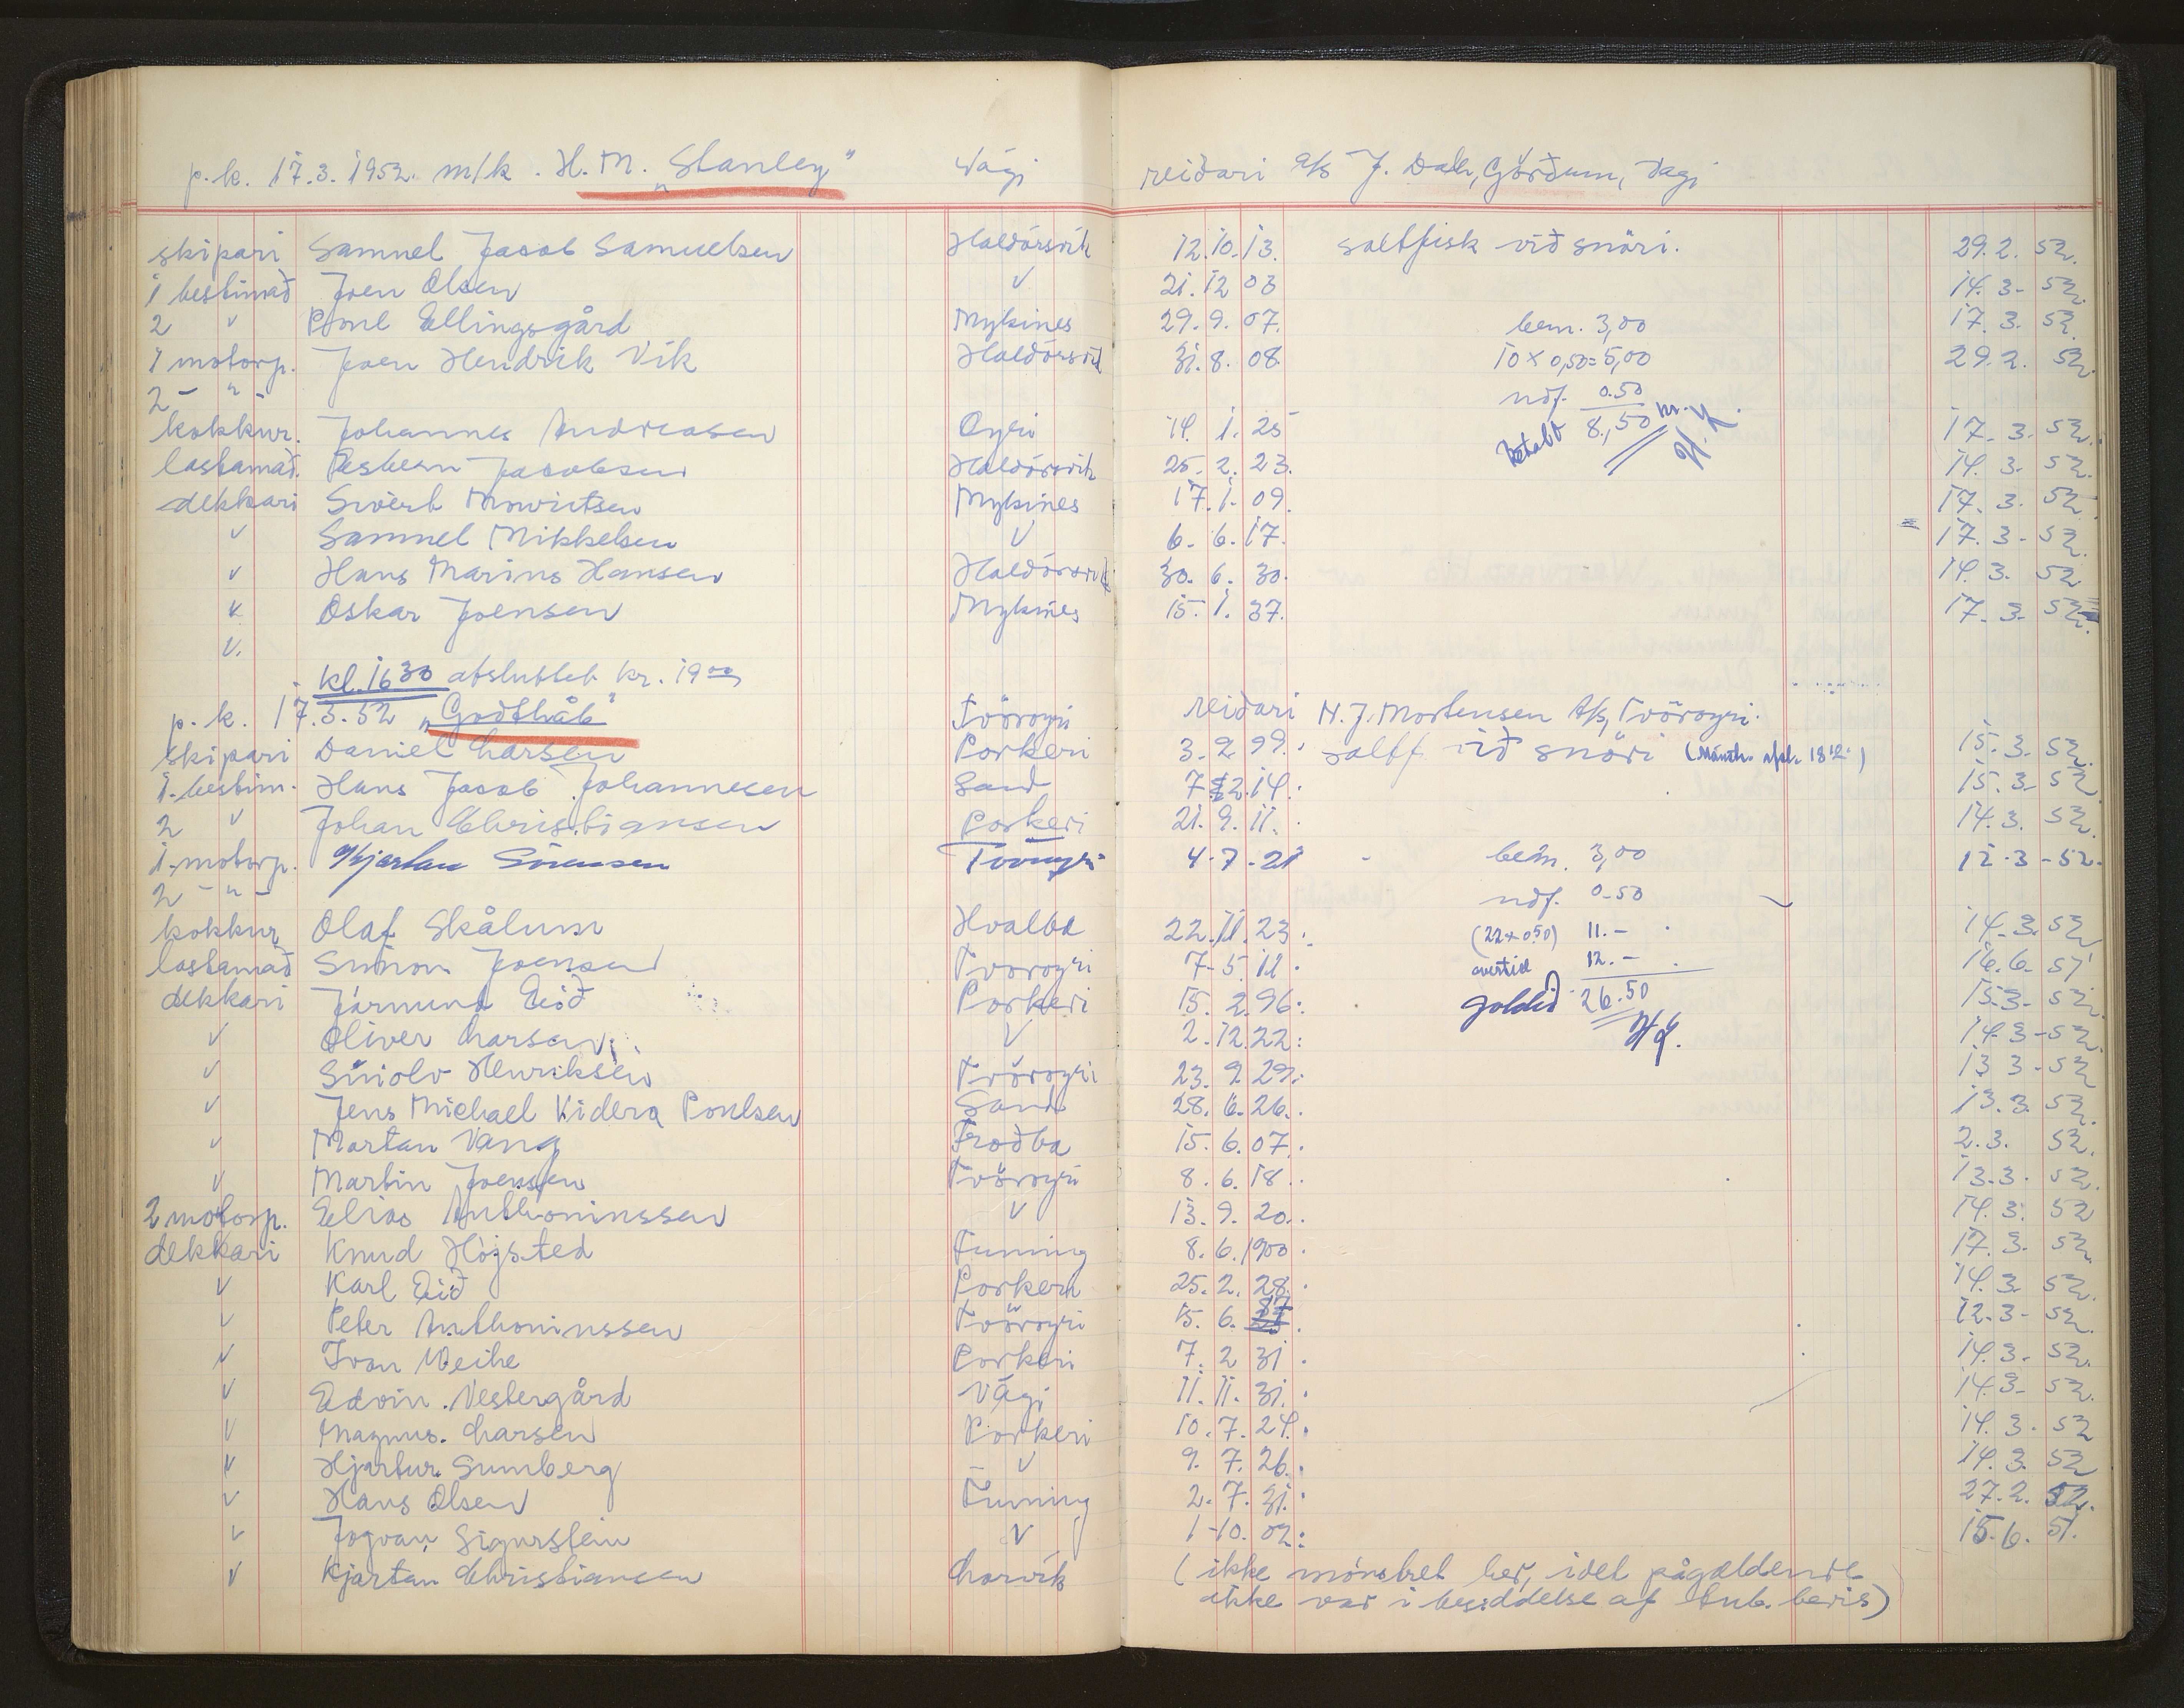 p.k. 17.3.1952. m/k. H.M. „Stanley" Vági reiðari a/s J. Dahl, Görðum, Vági
skipari Samuel Jacob Samuelsen Haldórsvík 12.10.13. saltfisk við snöri. 29.2.52.
1 bestimað Joen Olsen v 21.12 03 14.3-52.
2 v Poul Ellingsgård Mykines 29.9.07. bem. 3,00 17.3.52.
1 motorp. Joen Hendrik Vik Haldórsvík 31.8.08 10 x 0,50 = 5,00 29.2.52.
2 - " - ndf. 0.50
kokkur. Johannes Andreasen Oyri 14.1.25 Betalt 8,50 17.3.52.
lastamað. Esbern Jacobsen Haldórsvík 25.2.23. 14.3.52.
dekkari Sivert Mouritsen Mykines 17.1.09. 17.3.52
v Samuel Mikkelsen v 6.6.17. 17.3-52.
v Hans Marius Hansen Haldórsvík 30.6.30. 14.3.52
v Oskar Joensen Mykines 15.1.37. 17.3.52.
v.
kl. 16 30 afsluttet kr. 19 00
p.k. 17.3.52 „Godthåb" Tvöroyri reiðari N.J. Mortensen A/s, Tvöroyri.
skipari Daniel Larsen Porkeri 3.2 99. saltf við snöri (Mönstr. afsl. 18 12) 15.3.52.
1. bestim. Hans Jacob Johannesen Sand 7 12.14. 15.3-52
2 v Johan Christiansen Porkeri 21.9.11. 14.3.52.
1. motorp. Kjartan Sörensen Tvöroyri 4-7-21 bem. 3,00 12.3-52.
2 - " - ndf. 0-50
kokkur Olaf Skålum Hvalba 22.11.23. (22 x 0.50) 11.- 14.3.52
lastamað Simon Joensen Tvöroyri 7-5.12. overtid 12.- 16.6.51
dekkari Jármund Eið Porkeri 15.2.96. goldið 26.50 15.3-52.
v Oliver Larsen v 2.12.22. 14.3-52.
v Sniolv Henriksen Tvöroyri 23.9.29. 13 3-52
v Jens Michael Kidera Poulsen Sand 28.6.26. 13.3.52.
v Mortan Vang Froðba 15.6.07. 2.3. 52.
v Martin Joensen Tvöroyri 8.6.18. 13.3.52.
2 motorp. Elias Anthoninssen v 13.9.20. 14.3.52
dekkari Knud Højsted Funing 8.6.1900. 17.3.52
v Karl Eið Porkeri 25.2.28. 14.3.52.
v Peter Anthoninssen Tvöroyri 15.6. 12.3-52.
v Ivan Weihe Porkeri 7.2 31. 14.3-52.
v Edvin. Vestergård Vági 11.11.31. 14.3-52.
v Magnus. Larsen Porkeri 10.7.24. 14.3.52
v Hjartur Sumberg v 9.7.26. 14.3.52
v Hans Olsen Funing 2.7.31. 27.2.52.
v Jogvan Sigurstein v 1-10.02. 15.6.51.
v Kjartan Christiansen Lorvík (ikke mönstret her, idet pågældende
ikke var i besiddelse af bevis)